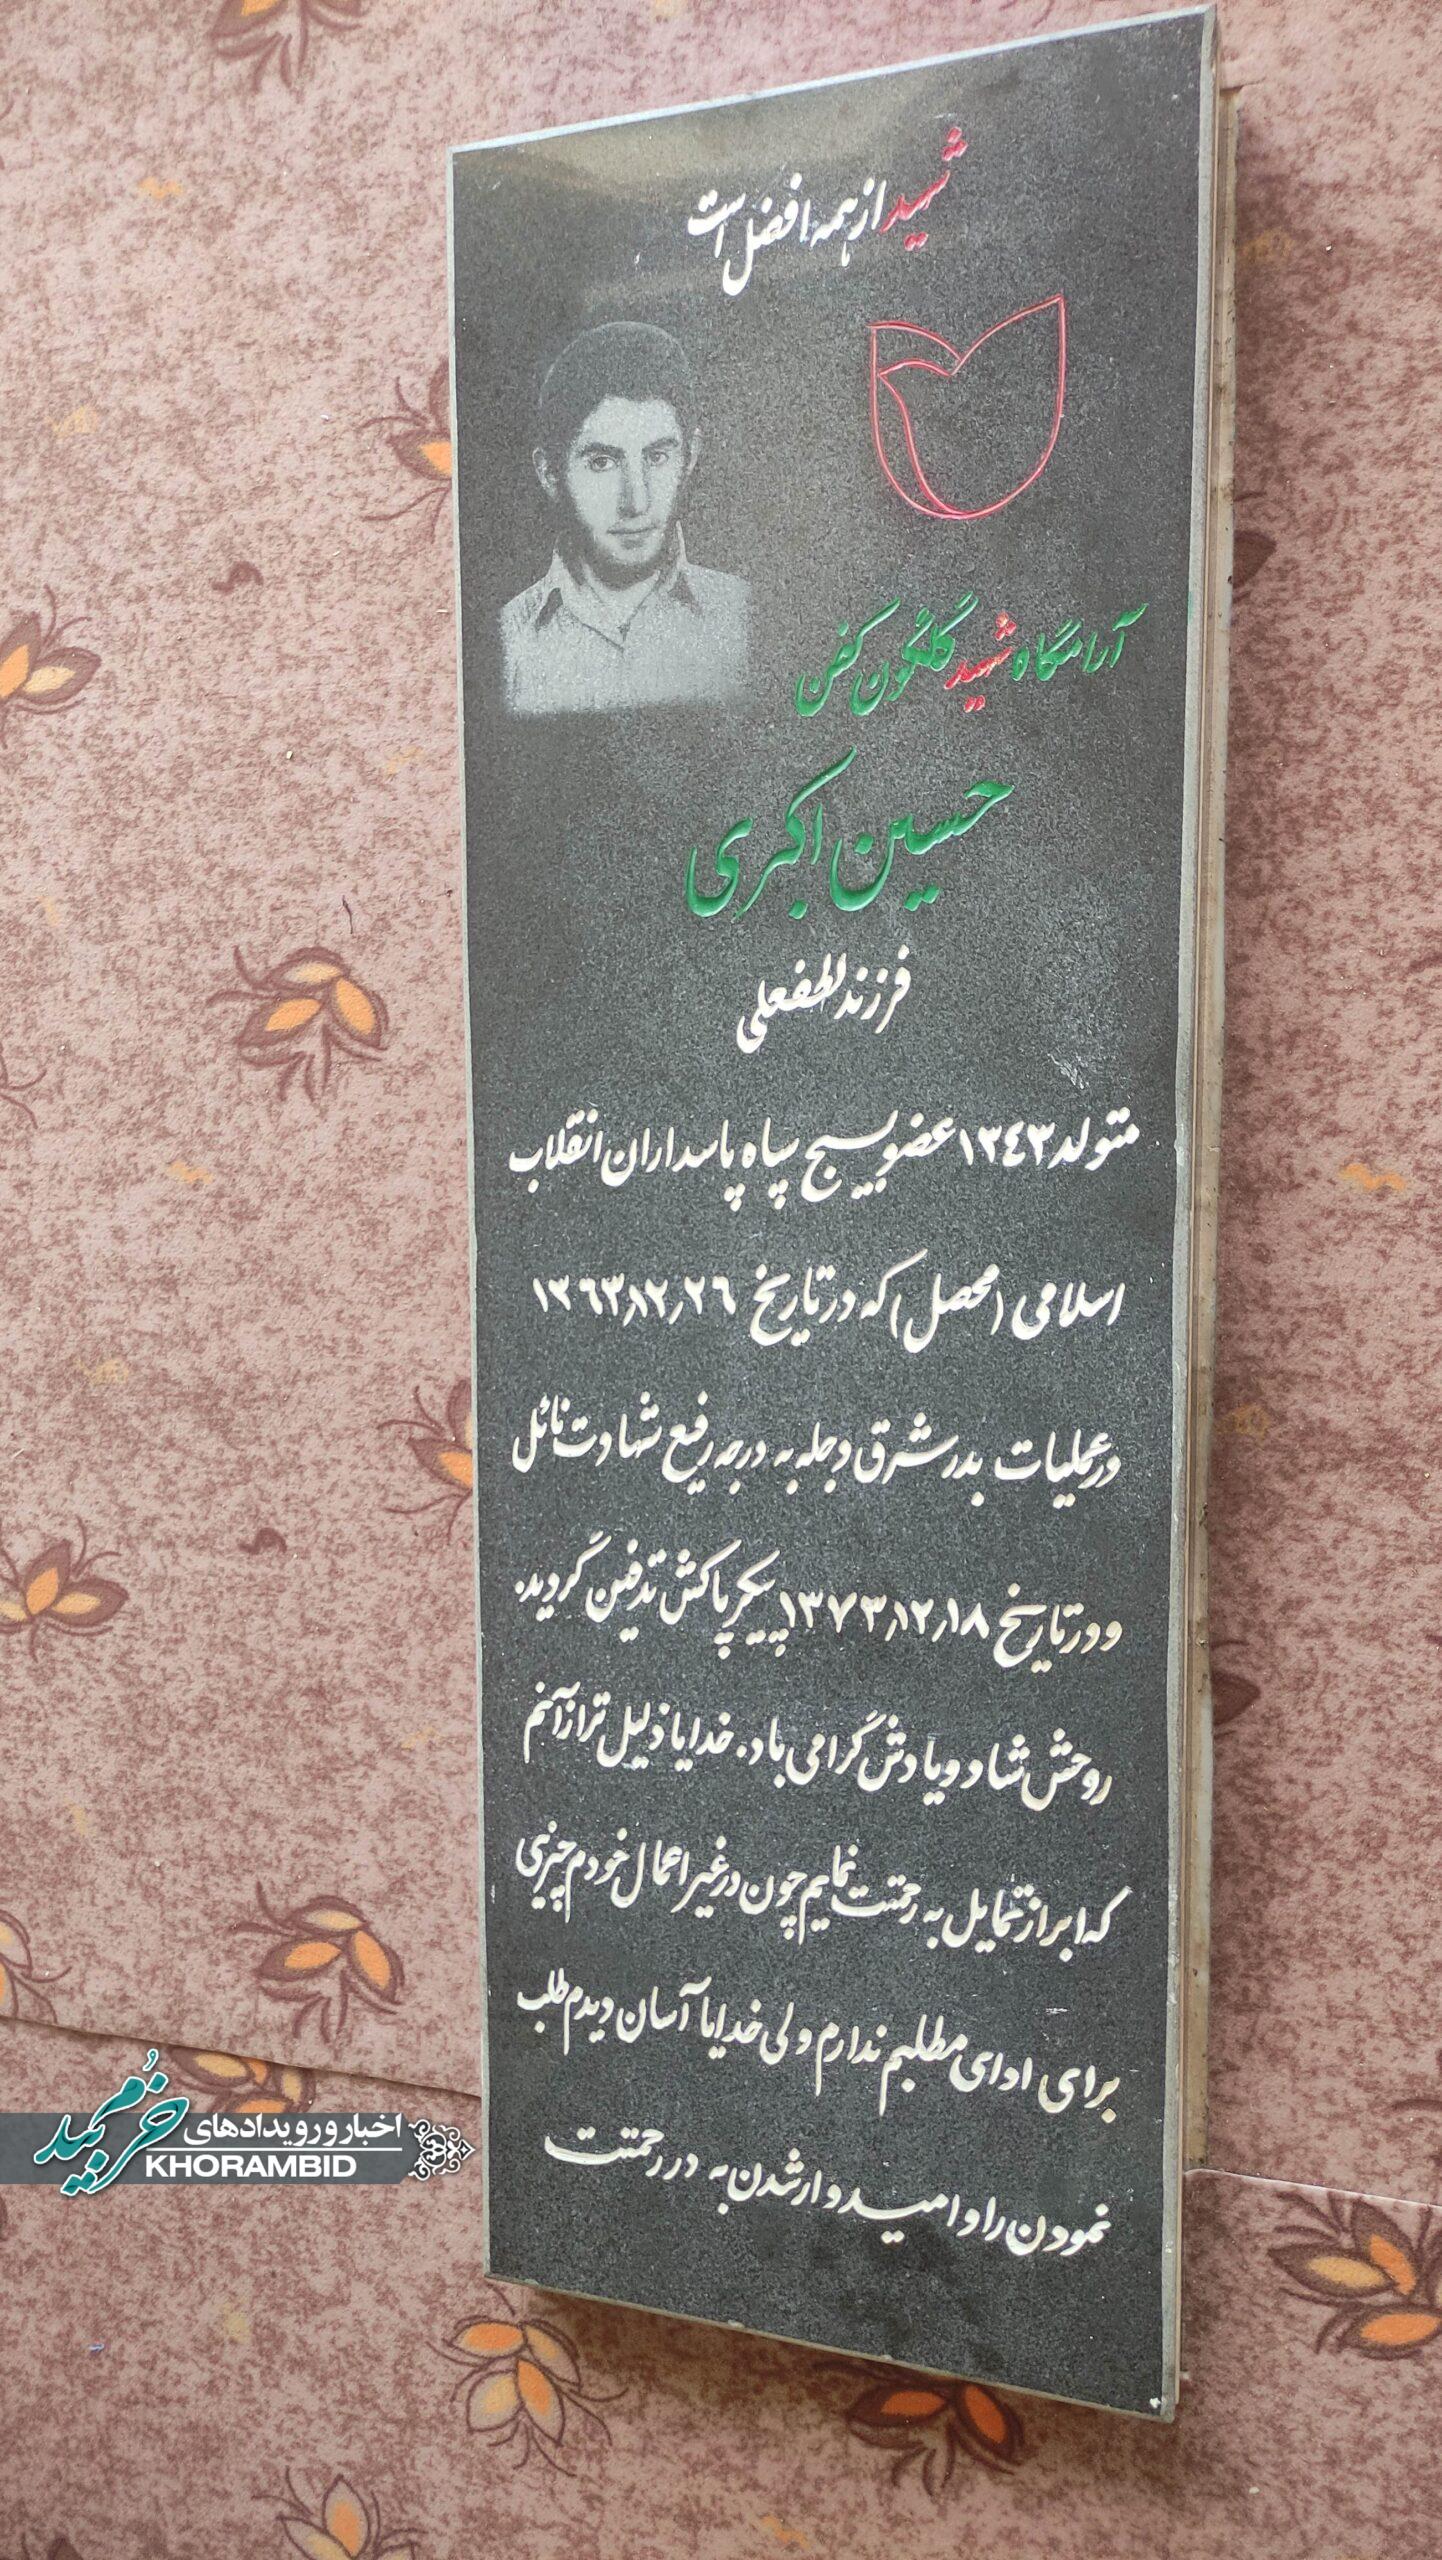 شهید از همه افضل است
آرامگاه شهید گلگون کفن
حسین اکبری
فرزند لطفعلی
متولد ۱۳۴۳ عضو بسیج سپاه پاسداران انقلاب
اسلامی (محصل) که در تاریخ ۱۳۶۳٫۱۲٫۲۶
در عملیات بدر شرق دجله به درجه رفیع شهادت نائل
و در تاریخ ۱۳۷۳٫۱۲٫۱۸ پیکر پاکش تدفین گردید.
روحش شاد و یادش گرامی باد. خدایا ذلیل تر از آنم
که ابراز تمایل به رحمتت نمایم چون در غیر اعمال خودم چیزی
برای ادای مطلبم ندارم ولی خدایا آسان دیدم طلب
نمودن را و امیدوار شدن به در رحمتت
اخبار و رویدادهای
خرمبید
KHORAMBID